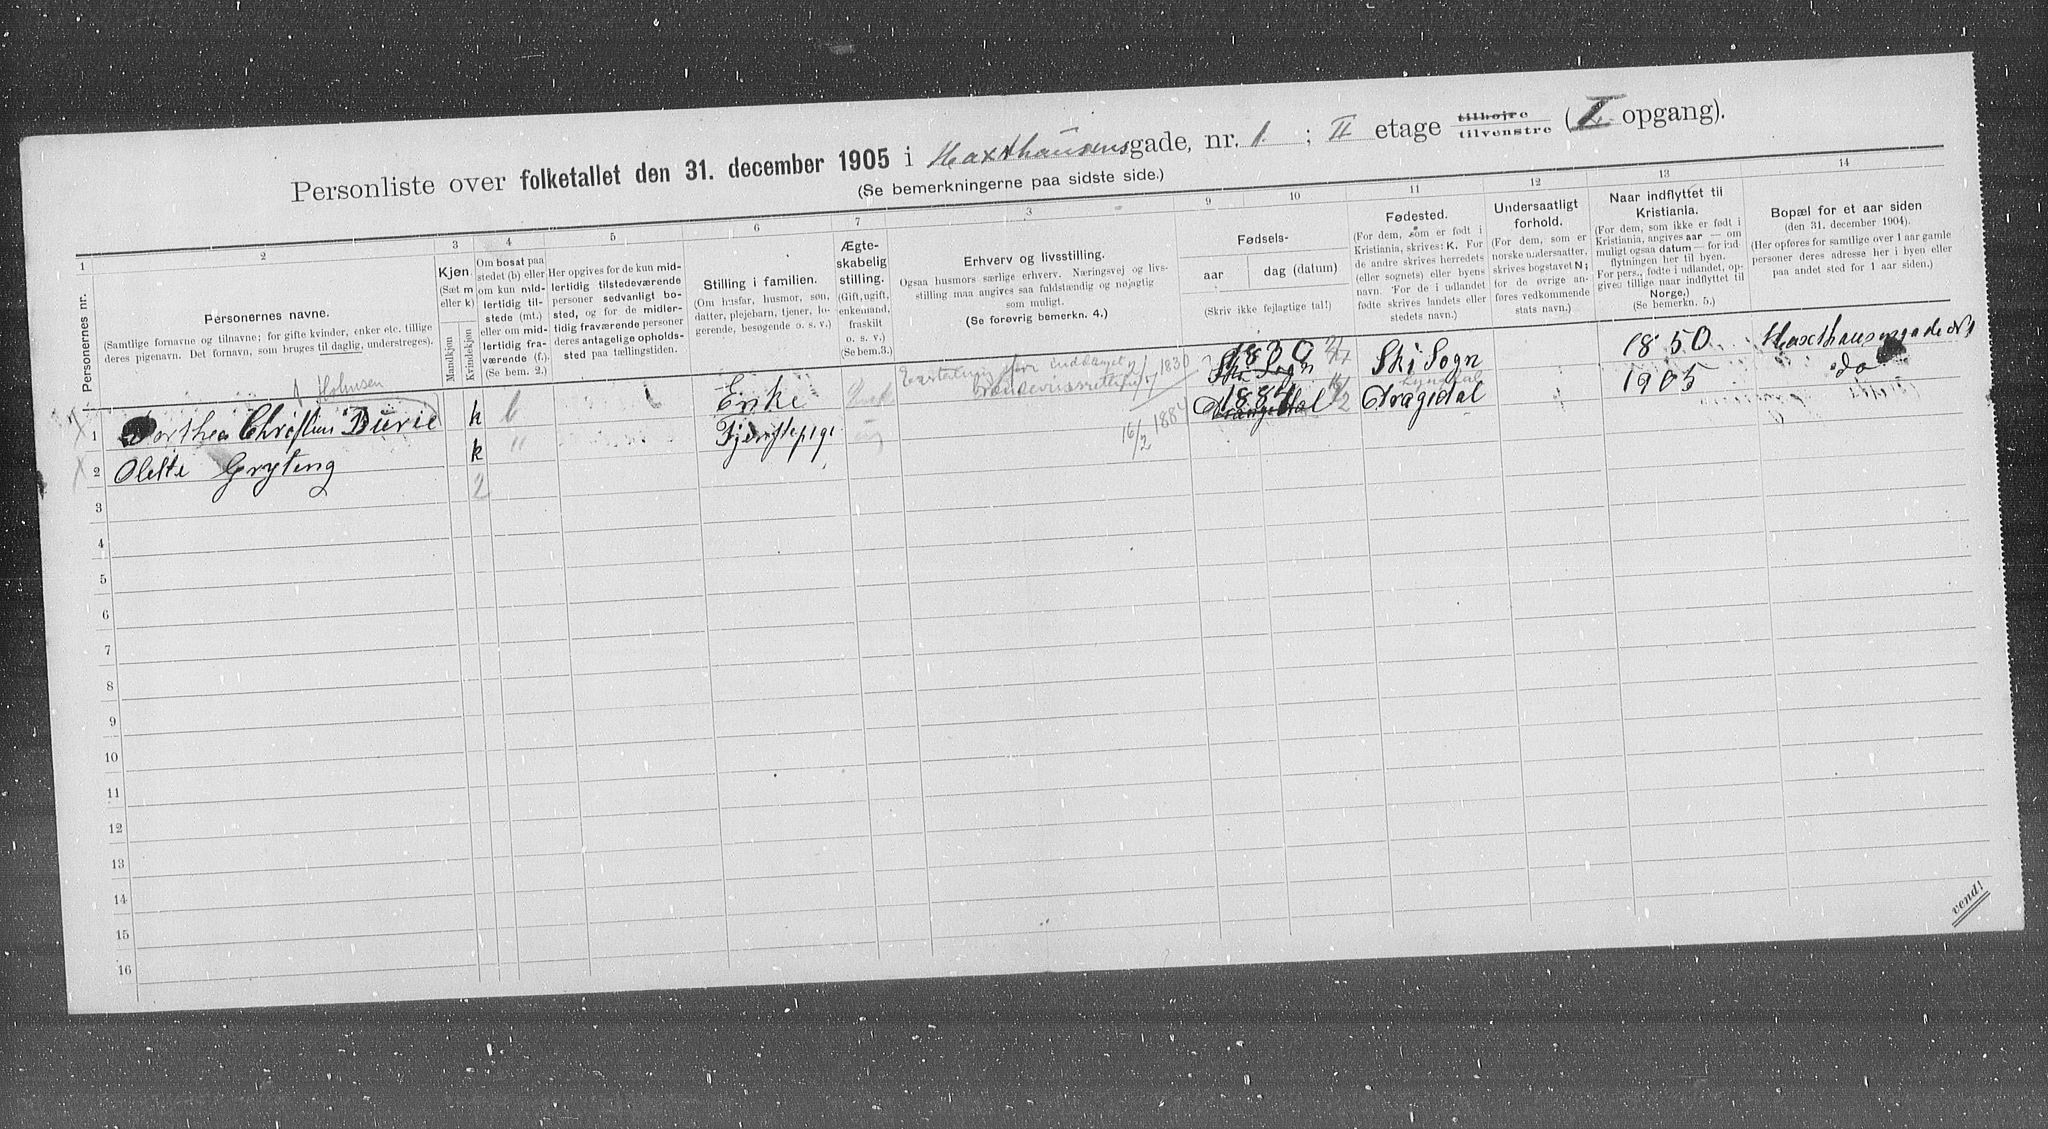 Personliste over folketallet den 31. december 1905 i Haxthausensgade, nr. 1. ; II etage tilhøjre tilvenstre (I opgang).
(Se bemerkningerne paa sidste side.)
1 2 3 4 5 6 7 3 9 10 11 12 13 14
Personernes nr.
Personernes navne.
(Samtlige fornavne og tilnavne; for gifte kvinder, enker etc. tillige
deres pigenavn. Det fornavn, som bruges til daglig, understreges).
Kjøn.
(Sæt m
eller k)
Mandkjøn
Kvindekjøn
Om bosat paa
stedet (b) eller
om kun mid-
lertidig til-
stede (mt.)
eller om mid-
lertidig fra-
værende (f.)
(Se bem. 2.)
Her opgives for de kun mid-
lertidig tilstedeværende
personer sedvanligt bo-
sted, og for de midler-
tidig fraværende personer
deres antagelige opholds-
sted paa tællingstiden.
Stilling i familien.
(Om husfar, husmor, søn,
datter, plejebarn, tjener, lo-
gerende, besøgende o. s. v.)
Ægte-
skabelig
stilling.
(Gift, ugift,
enkemand,
fraskilt
o. s. v.)
(Se bem. 3.)
Erhverv og livsstilling.
Ogsaa husmors særlige erhverv. Næringsvej og livs-
stilling maa angives saa fuldstændig og nøjagtig
som muligt.
(Se forøvrig bemerkn. 4.)
Fødsels-
aar
dag (datum)
(Skriv ikke fejlagtige tal!)
Fødested.
(For dem, som er født i
Kristiania, skrives: K. For
de andre skrives herredets
(eller sognets) eller byens
navn. For de i udlandet
fødte skrives landets eller
stedets navn.)
Undersaatligt
forhold.
(For dem, som er
norske undersaatter,
skrives bogstavet N;
for de øvrige an-
føres vedkommende
stats navn.)
Naar indflyttet til
Kristiania.
(For dem, som ikke er født i
Kristiania, angives aar — om
muligt ogsaa datum — for ind-
flytningen her til byen.
For pers., fødte i udlandet, op-
gives tillige naar indflyttet til
Norge,)
(Se bemerkn. 5.)
Bopæl for et aar siden
(den 31. december 1904).
(Her opføres for samtlige over 1 aar gamle
personer deres adresse her i byen eller
paa andet sted for 1 aar siden.)
Holmsen
1 Dorthea Christine Durie k b Enke 1830 Ski Sogn 1850 Haxthausensgade No 1
2 Olette Gryting k " Tjenestepige 16/2 1884 1884 16/2 Drangedal 1905 do
2
3
4
5
6
7
8
9
10
11
12
13
14
15
16
vend!